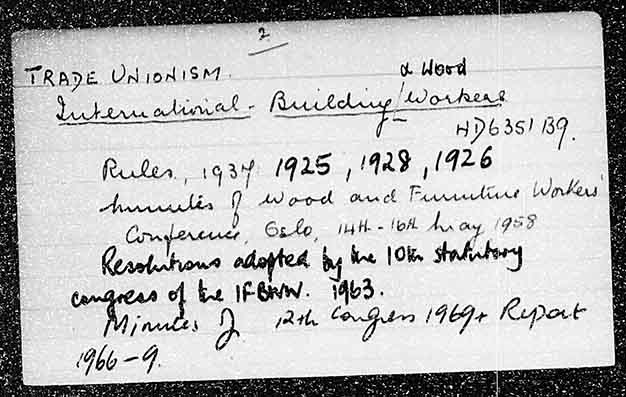 2
TRADE UNIONISM.
& Wood
International - Building/Workers
HD6351 B9.
Rules, 1937 1925, 1928, 1926
Minutes of Wood and Furniture Workers'
Conference, Oslo, 14th - 16th May 1958
Resolutions adopted by the 10th statutory
congress of the IFBWW. 1963.
Minutes of 12th Congress 1969 + Report
1966-9.